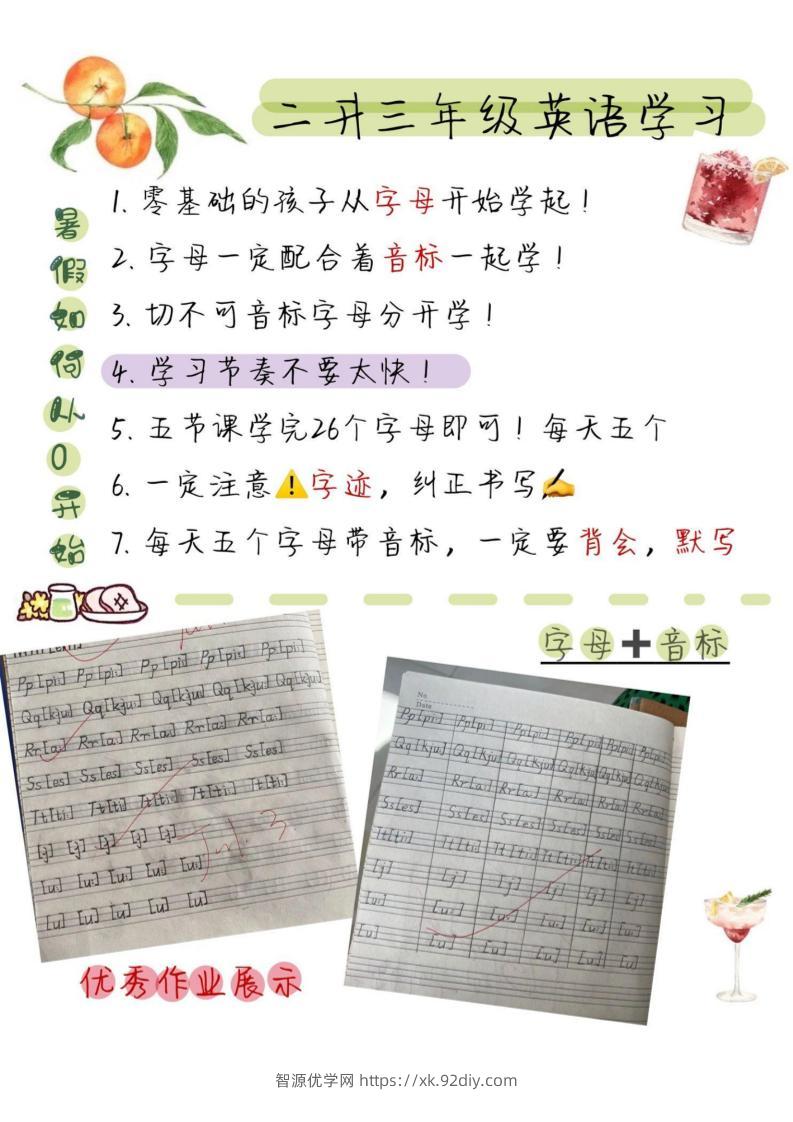 二升三年级英语学习
暑假如何从0开始
1. 零基础的孩子从字母开始学起！
2. 字母一定配合着音标一起学！
3. 切不可音标字母分开学！
4. 学习节奏不要太快！
5. 五节课学完26个字母即可！每天五个
6. 一定注意⚠️字迹，纠正书写✍️
7. 每天五个字母带音标，一定要背会，默写
字母➕音标
Pp [pi:] Pp [pi:] Pp [pi:] Pp [pi:] Pp [pi:]
Qq [kju:] Qq [kju:] Qq [kju:] Qq [kju:] Qq [kju:]
Rr [a:] Rr [a:] Rr [a:] Rr [a:] Rr [a:]
Ss [es] Ss [es] Ss [es] Ss [es] Ss [es]
Tt [ti:] Tt [ti:] Tt [ti:] Tt [ti:] Tt [ti:]
[j] [j] [j] [j] [j]
[u:] [u:] [u:] [u:] [u:]
[u] [u] [u] [u] [u]
No.
Date
Pp [pi:] Pp [pi:] Pp [pi:] Pp [pi:] Pp [pi:] Pp [pi:]
Qq [kju:] Qq [kju:] Qq [kju:] Qq [kju:] Qq [kju:] Qq [kju:]
Rr [a:] Rr [a:] Rr [a:] Rr [a:] Rr [a:] Rr [a:]
Ss [es] Ss [es] Ss [es] Ss [es] Ss [es] Ss [es]
Tt [ti:] Tt [ti:] Tt [ti:] Tt [ti:] Tt [ti:] Tt [ti:]
[j] [j] [j] [j] [j] [j]
[u:] [u:] [u:] [u:] [u:] [u:]
[u] [u] [u] [u] [u] [u]
优秀作业展示
智源优学网 https://xk.92diy.com